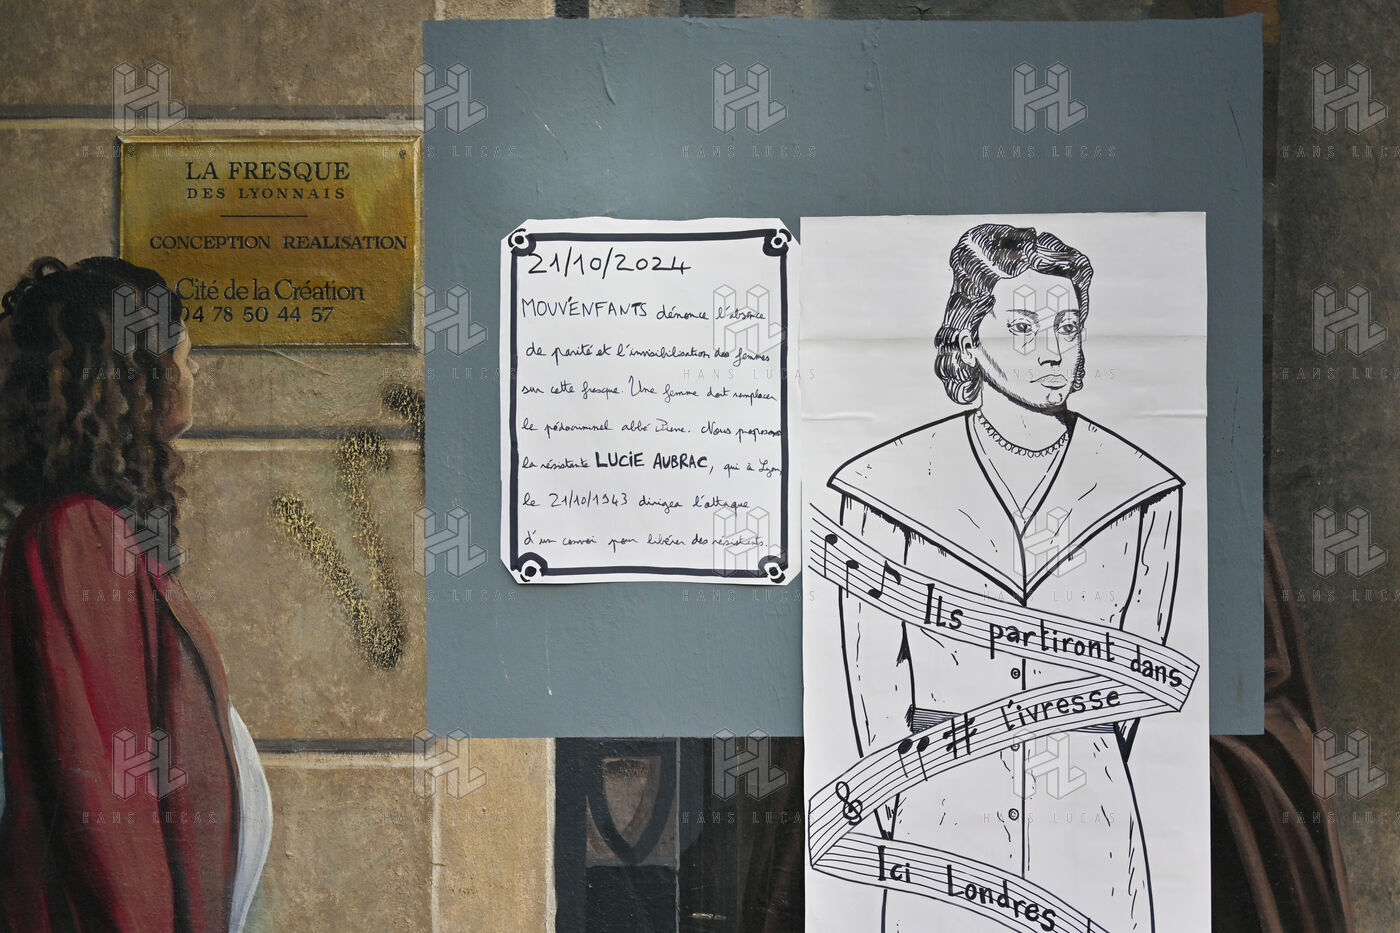 LA FRESQUE
DES LYONNAIS
CONCEPTION REALISATION
Cité de la Création
04 78 50 44 57
21/10/2024
MOUV'ENFANTS dénonce l'absence
de parité et l'invisibilisation des femmes
sur cette fresque. Une femme doit remplacer
le pédocriminel abbé Pierre. Nous proposons
la résistante LUCIE AUBRAC, qui à Lyon,
le 21/10/1943 dirigea l'attaque
d'un convoi pour libérer des résistants.
Ils partiront dans
l'ivresse
Ici Londres
HANS LUCAS